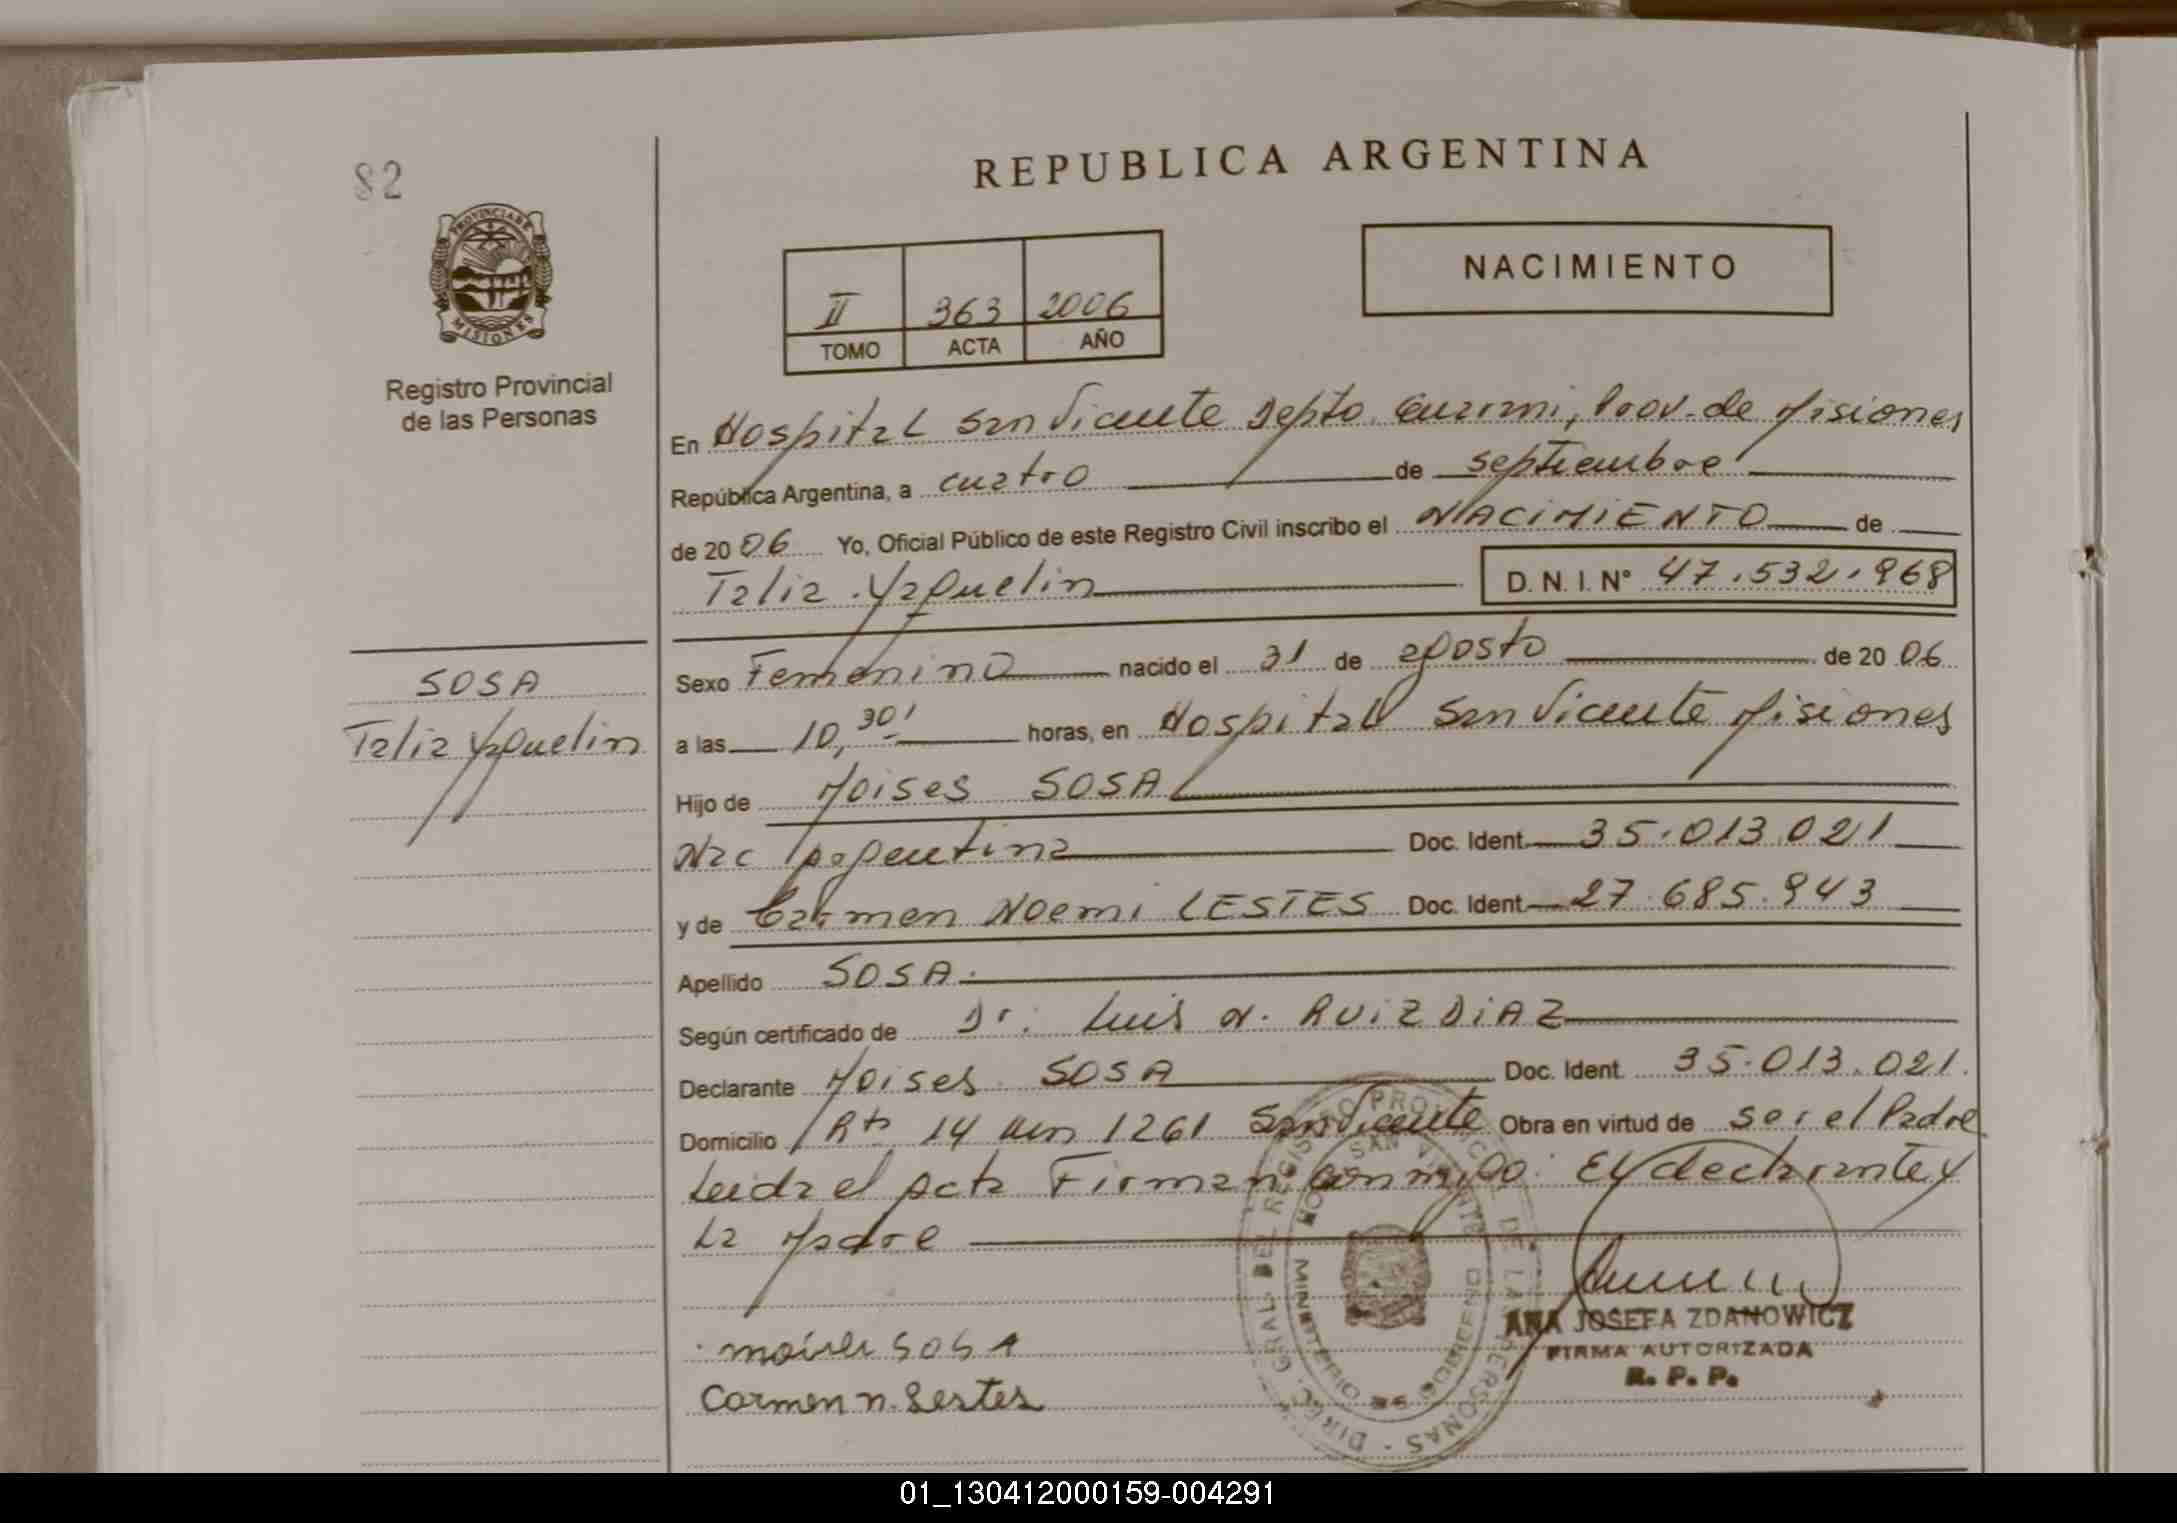 82
PROVINCIA DE
MISIONES
Registro Provincial
de las Personas
REPUBLICA ARGENTINA
II 363 2006
TOMO ACTA AÑO
NACIMIENTO
En Hospital San Vicente Depto. Guarani, Prov. de Misiones
República Argentina, a cuatro de septiembre
de 2006 Yo, Oficial Público de este Registro Civil inscribo el NACIMIENTO de
Talia Yaquelin D. N. I. N° 47.532.968
SOSA
Talia Yaquelin
Sexo Femenino nacido el 31 de agosto de 2006
a las 10,30' horas, en Hospital San Vicente Misiones
Hijo de Moises SOSA
Nac Argentina Doc. Ident. 35.013.021
y de Carmen Noemi LESTES Doc. Ident. 27.685.943
Apellido SOSA.
Según certificado de Dr. Luis A. RUIZ DIAZ
Declarante Moises SOSA Doc. Ident. 35.013.021.
Domicilio Rta 14 Km 1261 San Vicente Obra en virtud de ser el Padre
Leida el Acta Firman conmigo: El declarante y
La Madre
Moises SOSA
Carmen n. Lestes
ANA JOSEFA ZDANOWICZ
FIRMA AUTORIZADA
R. P. P.
DIREC. GRAL. DEL REGISTRO PROVINCIAL DE LAS PERSONAS
HOSP. SAN VICENTE
MINISTERIO DE GOBIERNO
01_130412000159-004291